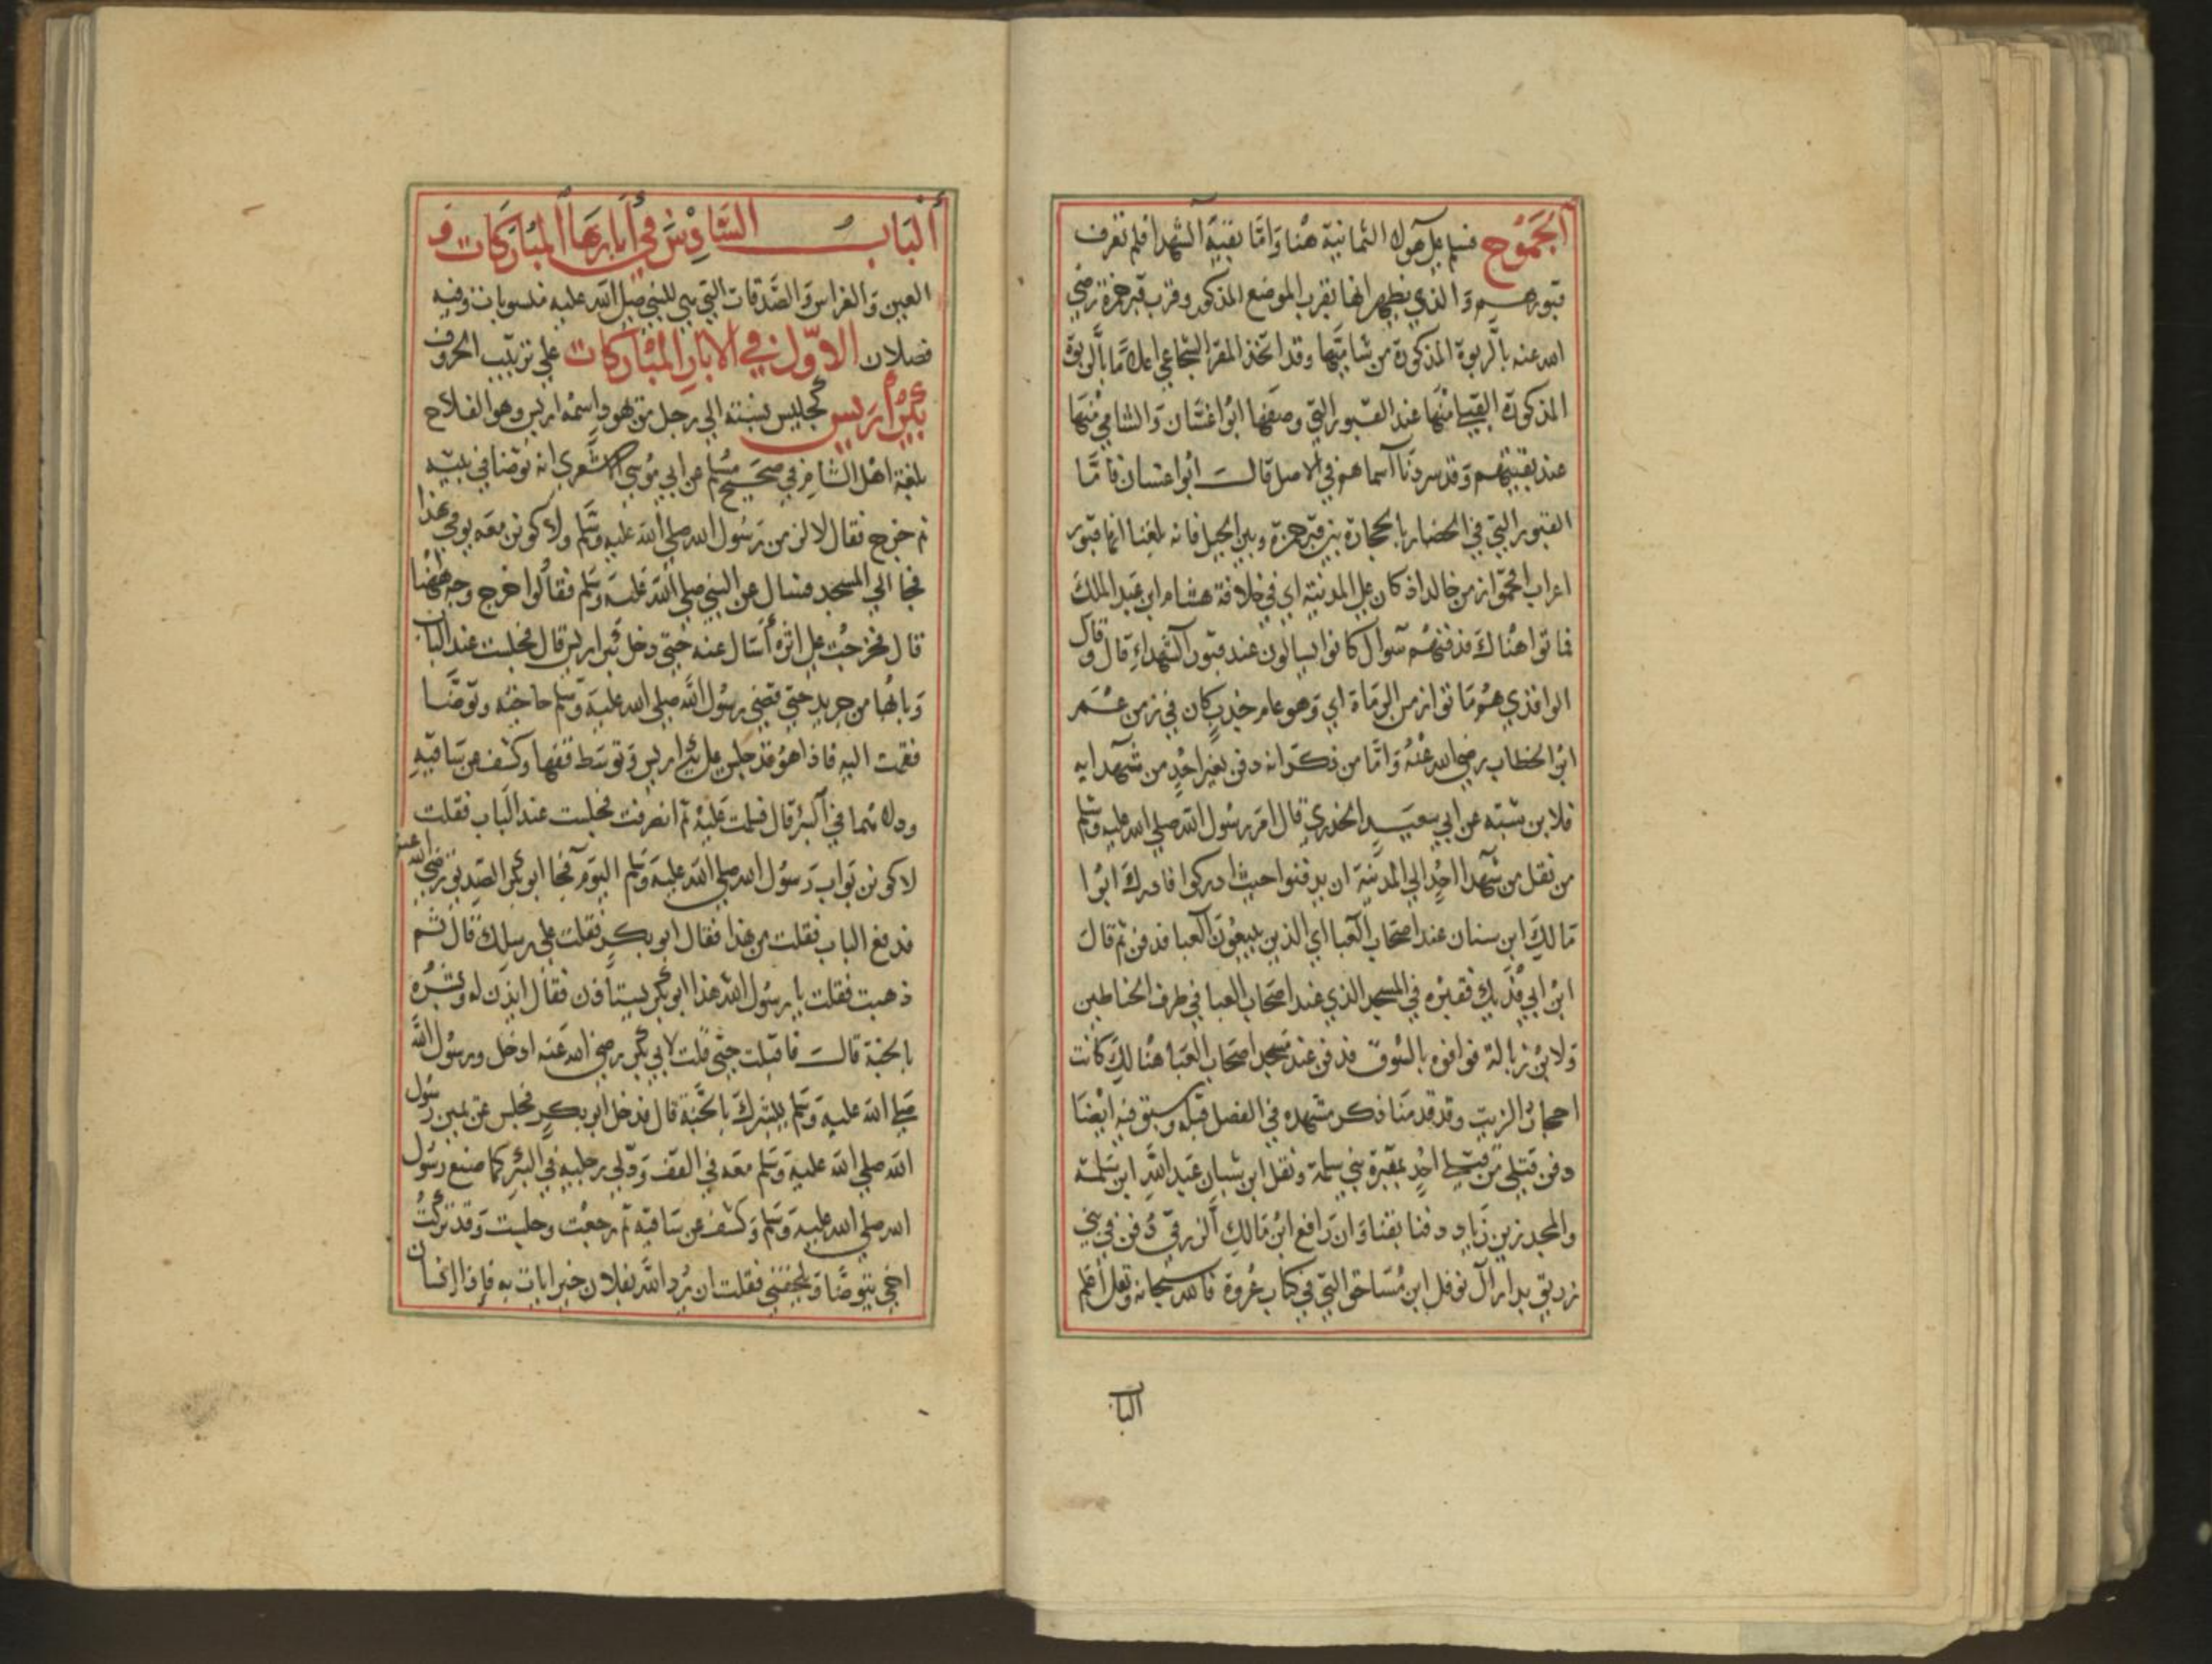 الجَمُوح فسلم على هؤلاء الثمانية هنا وَامّا بقية الشهدا فلم تعرف
قبورهم وَالذي يظهر انها بقرب الموضع المذكور وقرب قبر حمزة رضي
الله عنه بالربوة المذكورة من شاميّها وقد اتخذ المقر الشجاعي اعلاما بالربوة
المذكورة القبلي منها عند القبور التي وصفها ابوا غسّان وَالشامي منها
عند بقيتهم وَقد سردنا اسماهم في الاصل قالـــ ابوا غسان فامّا
القبور التي في الحضار بالحجارة بين قبر حمزة وبين الجبل فانه بلغنا انها قبور
اعراب اقحموا زمن خالد اذ كان على المدينة اي في خلافة هشام ابن عبد الملك
فماتوا هناك فدفنهم سوال كانوا يسالون عند قبور الشهداءِ قال وقال
الواقدي هُم مَاتوا زمن الرمَادة اي وهو عام خدب كان في زمن عمر
ابن الخطاب رضي الله عنْهُ وَامّا من ذكر انه دفن بغير احُدٍ من شهدايه
فلابن شبته عن ابي سَعيــد الخدري قال امَر رسُول الله صلى الله عليه وسلم
من نقل من شهدا احُد الي المدينة ان يدفنوا حيث ادركوا فادرك ابوا
مَالك ابن سنان عند اصحاب العبا اي الذين يبيعون العبا فدفن ثم قال
ابن ابي فُدَيك فقبره في المسجد الذي عند اصحاب العبا في طرف الحناطين
وَلابن زبالة فوافوه بالسُوق فدفن عند مسجد اصحاب العَبا هنالك كانت
احجار الزيت وقد قدمنا ذكر مشهده في الفصل قبله وسبق فيه ايضا
دفن قتيلي من قتلي احُدٍ بمقبرة بني سلمة ونقل ابن شبان عَبد اللهِ ابن سَلمة
والمجدر بن زياد دفنا بقنا وَان رَافع ابن مَالك الزرقي دُفن في بني
زريق بدار آل نوفل ابن مُساحق التي في كتاب عُروة فالله سبحانه وتعالى اعلم
الباب
ألباب السَّادِسُ في أبَارِهَا المُبَارَكَات وَ
العين وَالغراس وَالصَّدقات التي هي للنبي صلى الله عليه منسوبات وفيه
فصلان الاوّل في الآبار المُبْارَكات علي ترتيب الحروف
بئرُ أَريس كجليس نسبته الي رجل من يهود اسمُه اريس وهو الفلاح
بلغة اهل الشام في صحيح مسلم عن ابي مُوسي الاشعري انه توضا في بيته
ثم خرج فقال لالزمن رَسُول الله صلى الله عليه وسَلم ولاكونن معَه يومي هَذا
فجا الي المسجد فسال عن النبي صلى الله عَليه وسَلم فقالوا خرج وجه ههُنا
قال فخرجتُ على اثره أسَال عنه حتي دخل بئر اريس قال فجلست عند الباب
وَبابُها من جريد حتي قضي رسُول الله صلى الله عليه وسلم حاجته وتوضّا
فقمت اليه فاذا هوُ قد جلس على بئر اريس وَتوسَّط قفها وكشف عن ساقيهِ
ودلاهُما في البئر قال فسلمت عَليهْ ثم انصرفت فجلست عند الباب فقلت
لاكونن بَواب رَسُول الله صلى الله عليه وَسلم اليَوم فجا ابو بكر الصّديق رضي الله عنه
فدفع الباب فقلت من هذا فقال ابو بكــرٍ فقلت علي رسلك قال ثم
ذهبت فقلت يا رسُول الله هَذا ابو بكر يستاذن فقال ايذن له وبشره
بالجنة قالــ فاقبلت حتي قلت لابي بكر رضي الله عَنه ادخل ورسُول الله
صلى الله عليه وَسلم يبشرك بالجَّنة قال فدخل ابو بكرٍ فجلس عن يمين رسُول
الله صلى الله عليه وَسلم معَه في القف وَدلي رجليه في البئر كما صنع رسول
الله صلى الله عليه وَسلم وَكشف عن سَاقيه ثم رجعْت وجلست وَقد تركتُ
اخي يتوضَّا وَيلحقني فقلت ان يُرد الله بفلان خيرا يات به فاذا انسان